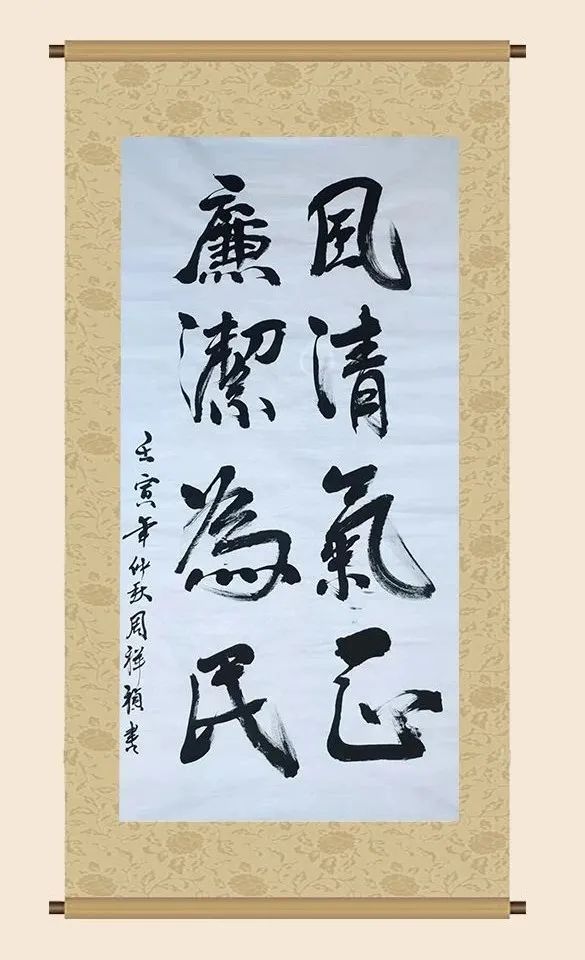 風清氣正
廉潔為民
壬寅年仲秋周祥禎書